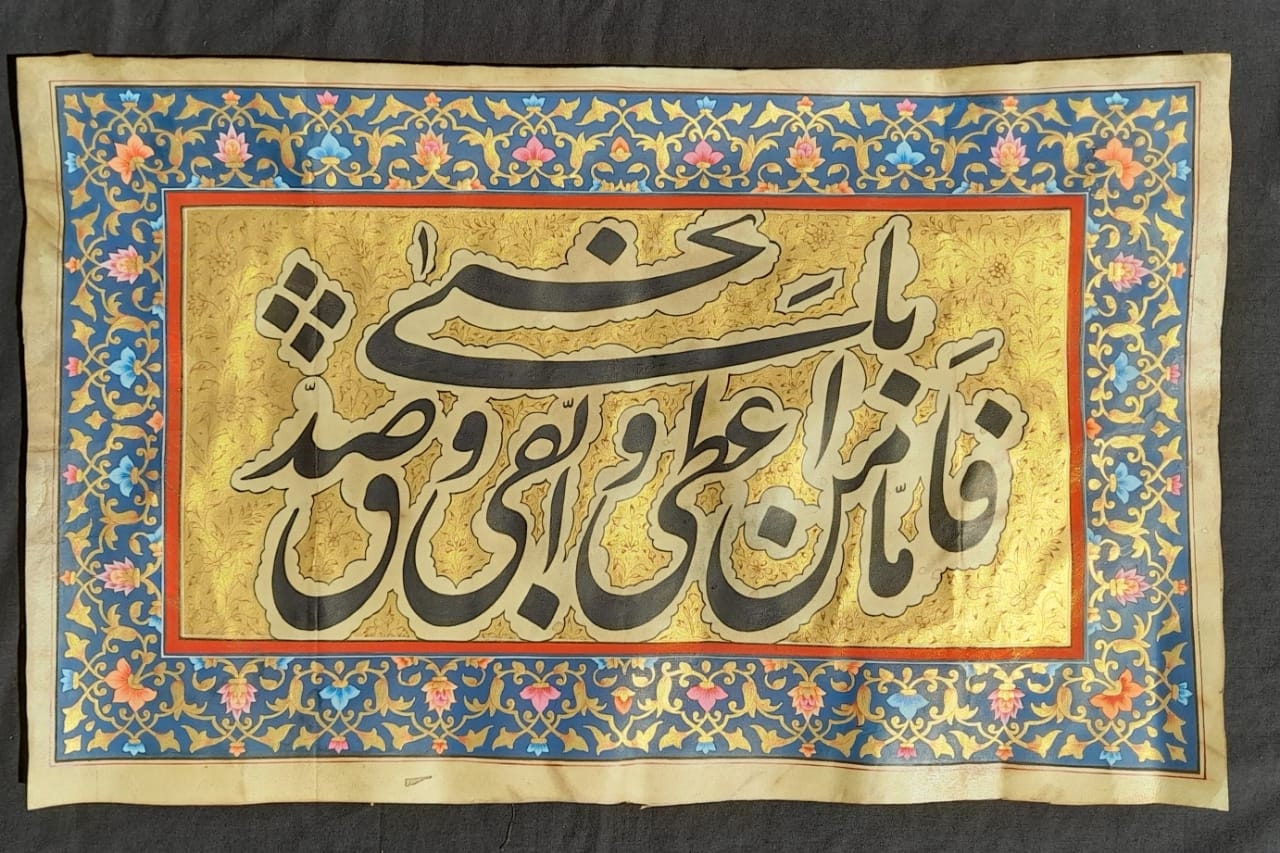 فَامّا من اعطی و اتّقی و صدّق
بالحسنی